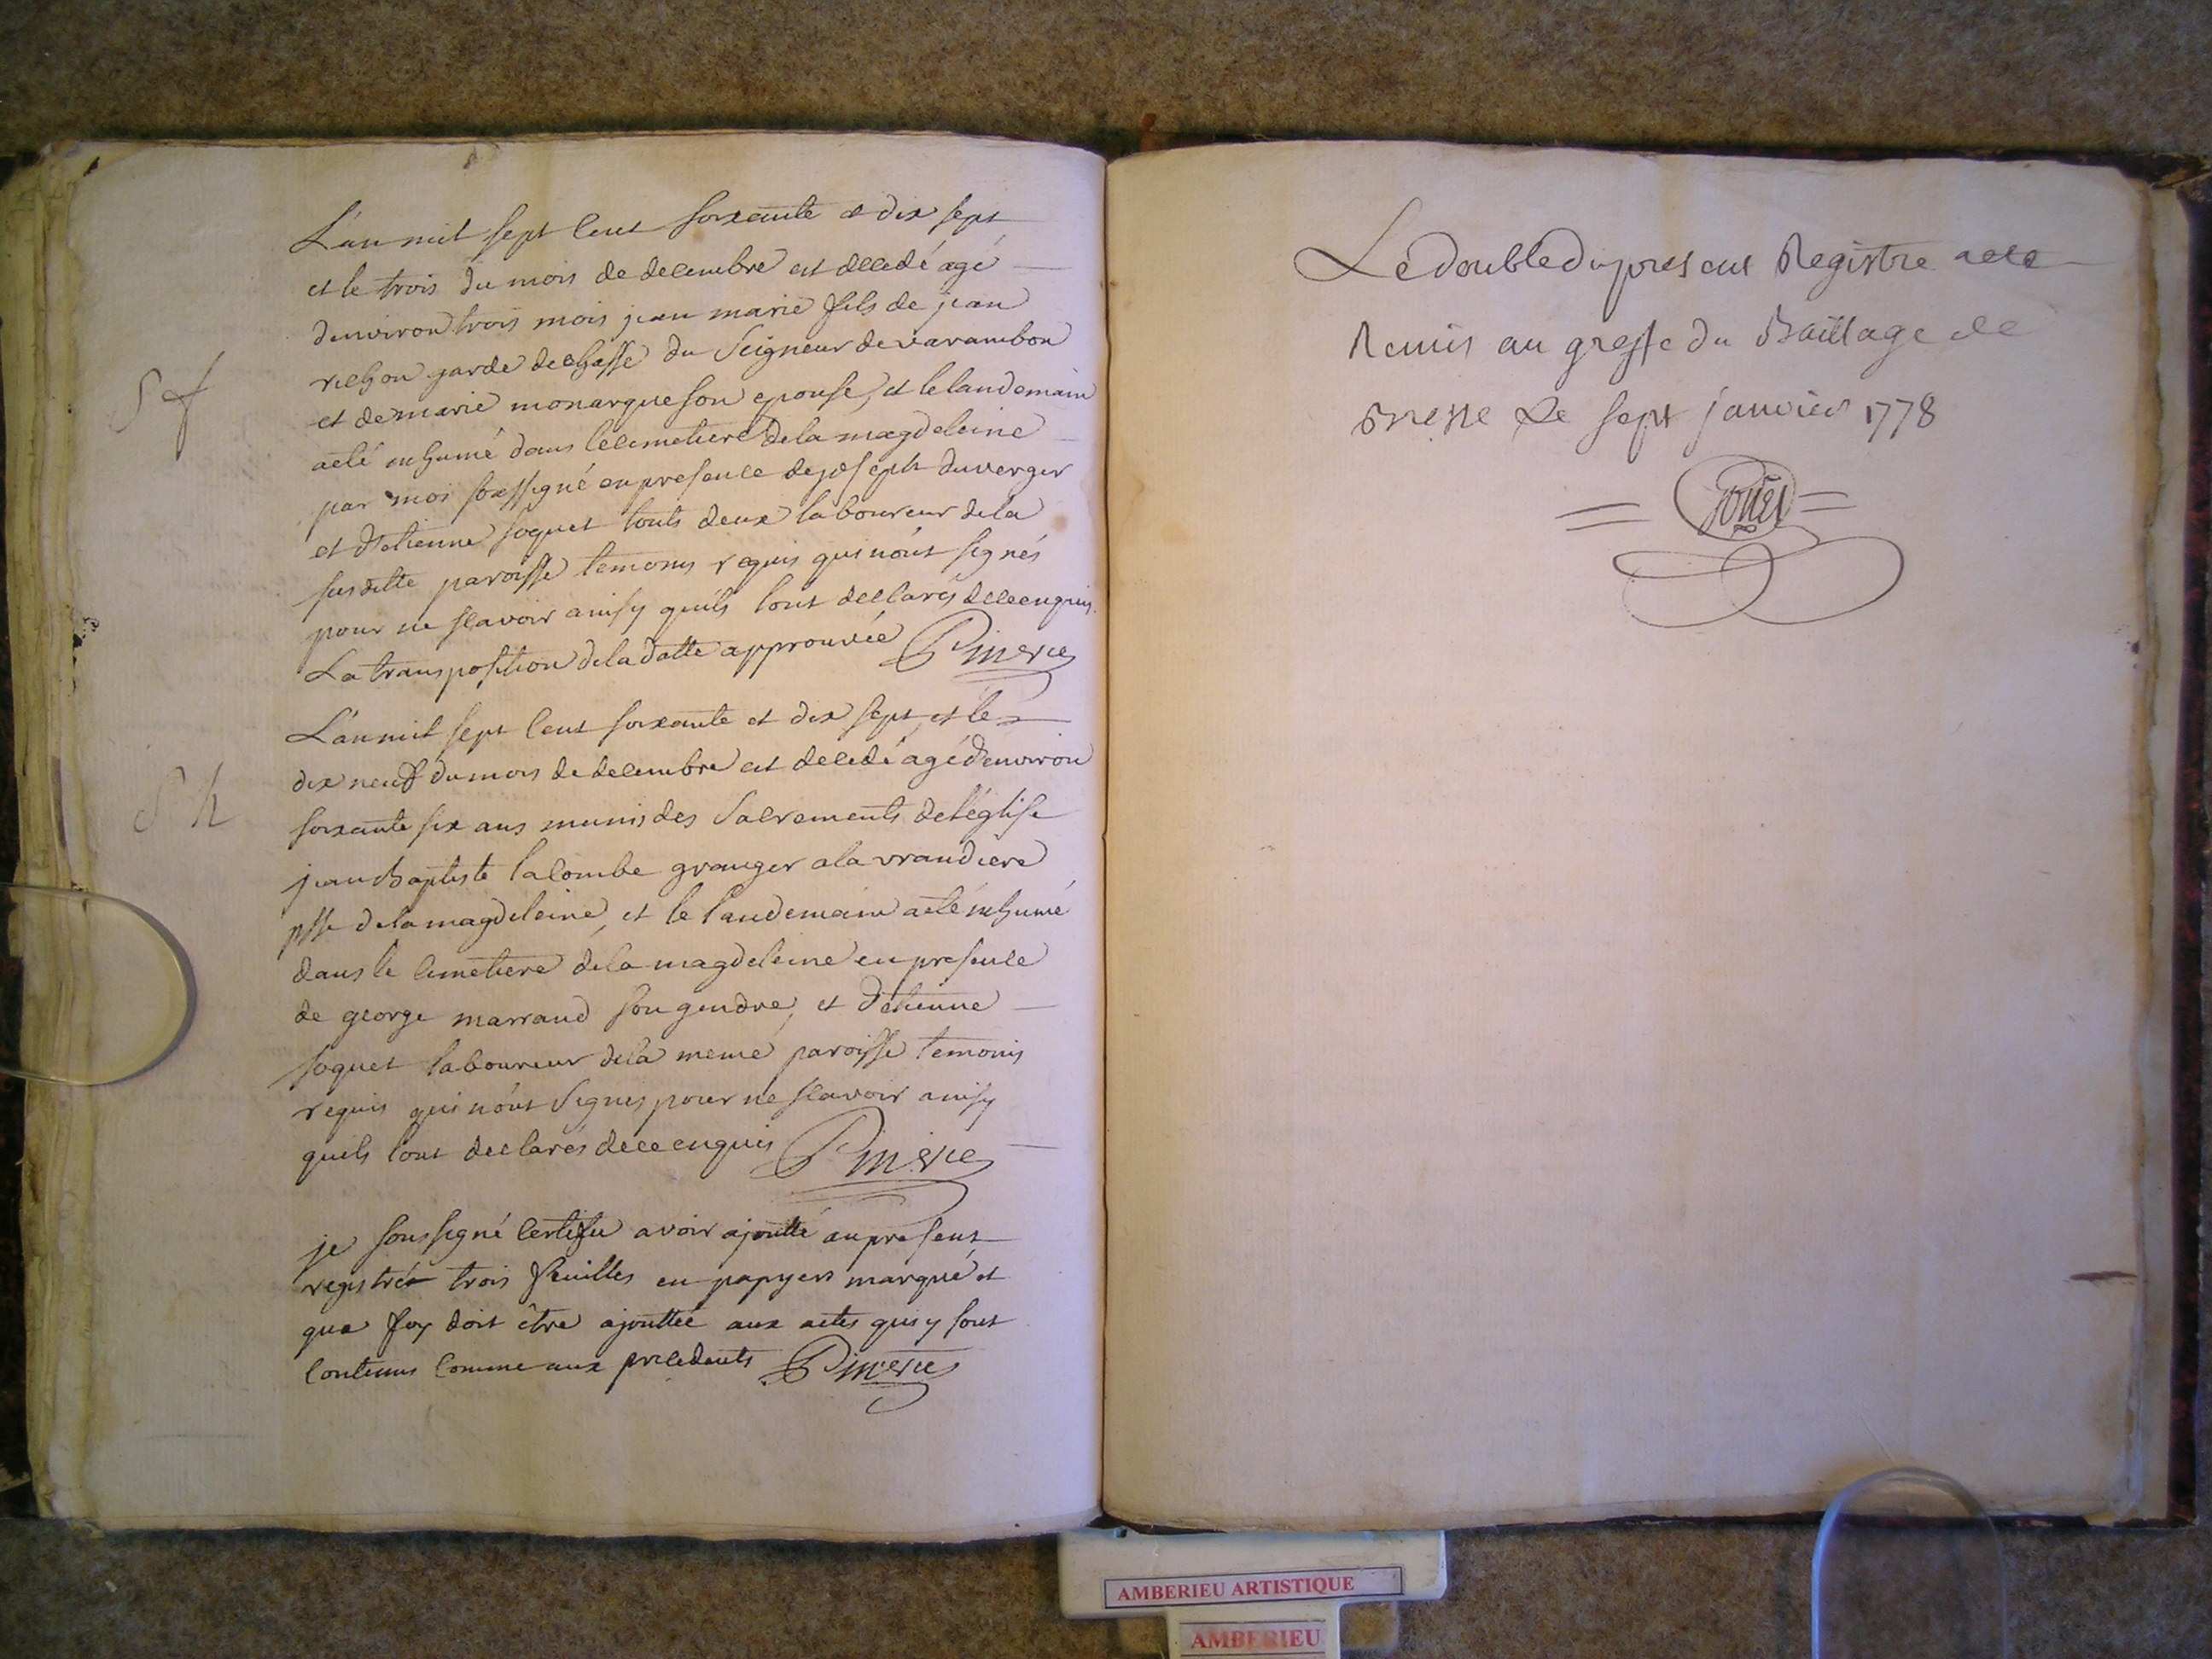 L'an mil sept cent soixante et dix sept
et le trois du mois de decembre est decedé agé
d'environ trois mois jean marie fils de jean
garde de chasse du Seigneur de varambon
et de marie monarque son epouse, et le landemain
a eté inhumé dans le cimetiere de la magdeleine
par moi soussigné en presence de joseph duverger
et d'etienne soquet touts deux laboureur de la
susditte paroisse temoins requis qui n'ont signés
pour ne scavoir ainsy qu'ils l'ont declarés de ce enquis.
La transposition de la datte approuvée
S f
L'an mil sept cent soixante et dix sept, et le
dix neuf du mois de decembre est decedé agé d'environ
soixante six ans munis des Sacrements de l'église
jean Baptiste lacombe granger a la
psse de la magdeleine, et le landemain a eté inhumé
dans le cimetiere de la magdeleine en presence
de george marraud son gendre, et d'etienne
soquet laboureur de la meme paroisse temoins
requis qui n'ont Signés pour ne scavoir ainsy
quils l'ont declarés de ce enquis
S h
je soussigné certifie avoir ajoutté au present
registre trois feuilles en papyer marqué et
que foy doit être ajouttée aux actes qui y sont
contenus comme aux precedents
Le double du present Registre a eté
Remis au greffe du Baillage de
Bresse Le sept janvier 1778
AMBERIEU ARTISTIQUE
AMBERIEU